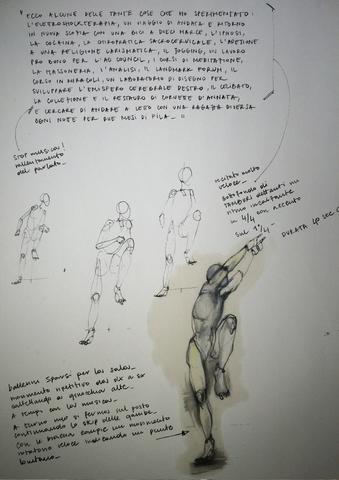 "ECCO ALCUNE DELLE TANTE COSE CHE HO SPERIMENTATO:
L'ELETTROSHOCKTERAPIA, UN VIAGGIO DI ANDATA E RITORNO
IN NUOVA SCOTIA CON UNA BICI A DIECI MARCE, L'IPNOSI,
LA COCAINA, LA CHIROPRATICA SACROCERVICALE, L'ADESIONE
A UNA RELIGIONE CARISMATICA, IL JOGGING, IN LAVORO
PRO BONO PER L'AD COUNCIL, I CORSI DI MEDITAZIONE,
LA MASSONERIA, L'ANALISI, IL LANDMARK FORUM, IL
CORSO IN MIRACOLI, UN LABORATORIO DI DISEGNO PER
SVILUPPARE L'EMISFERO CEREBRALE DESTRO, IL CELIBATO,
LA COLLEZIONE E IL RESTAURO DI CORVETTE D'ANNATA,
E CERCARE DI ANDARE A LETTO CON UNA RAGAZZA DIVERSA
OGNI NOTTE PER DUE MESI DI FILA_"
STOP musica!
rallentamento
del parlato_
recitato molto
veloce_
sottofondo di
TAMBURI dettanti un
ritmo incalzante
in 4/4 con accento
sul 1°/4_
DURATA 40 sec.
ballerini sparsi per la sala_
movimento ripetitivo da dx a sx
a ginocchia alte_
A tempo con la musica_
A turno uno si ferma sul posto
continuando lo skip delle gambe_
con le braccia compie un movimento
rotatorio veloce indicando un punto
lontano_